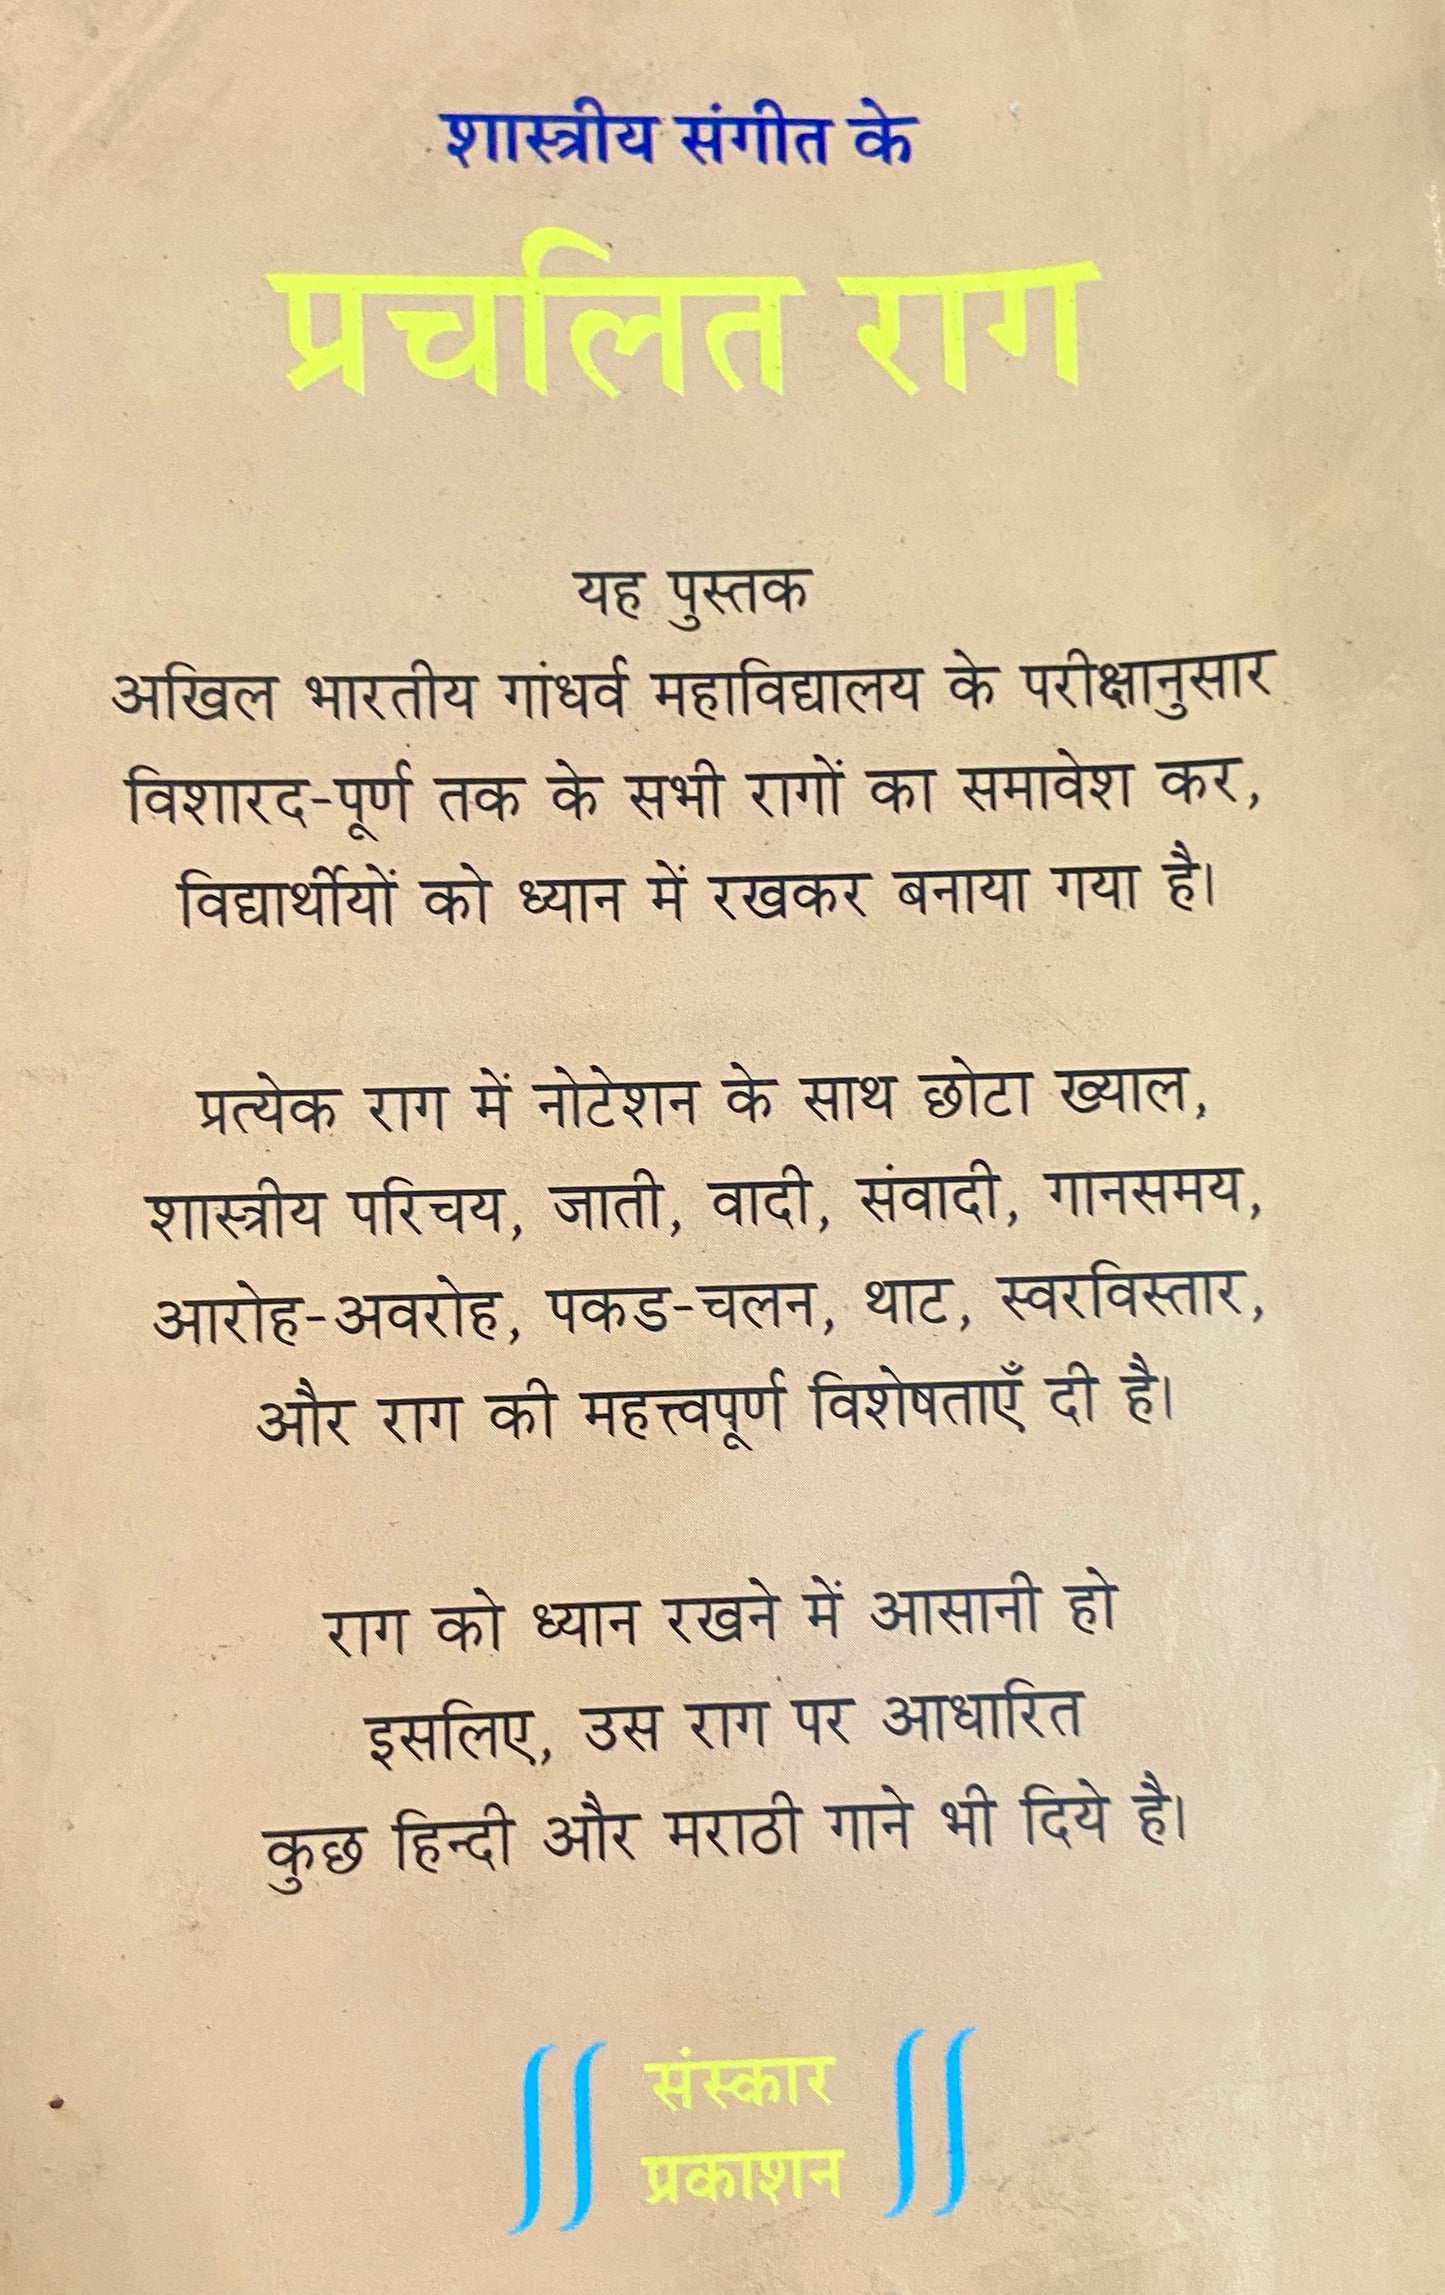 शास्त्रीय संगीत के
प्रचलित राग
यह पुस्तक
अखिल भारतीय गांधर्व महाविद्यालय के परीक्षानुसार
विशारद-पूर्ण तक के सभी रागों का समावेश कर,
विद्यार्थीयों को ध्यान में रखकर बनाया गया है।
प्रत्येक राग में नोटेशन के साथ छोटा ख्याल,
शास्त्रीय परिचय, जाती, वादी, संवादी, गानसमय,
आरोह-अवरोह, पकड-चलन, थाट, स्वरविस्तार,
और राग की महत्त्वपूर्ण विशेषताएँ दी है।
राग को ध्यान रखने में आसानी हो
इसलिए, उस राग पर आधारित
कुछ हिन्दी और मराठी गाने भी दिये है।
संस्कार
प्रकाशन